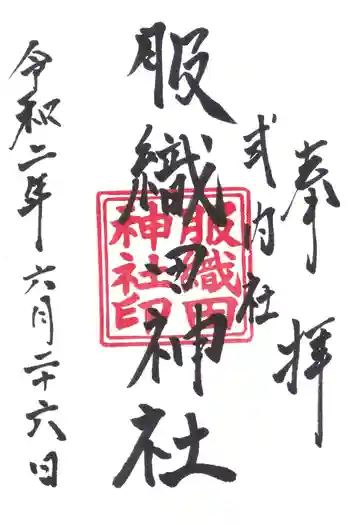 奉拝
式内社
服織田神社
服織田神社印
令和二年六月二十六日